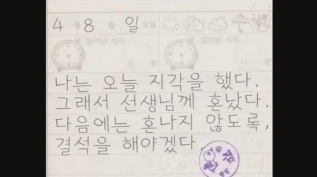 4 월 8 일 요일
일어난 시각
잠자는 시각
시 분
시 분
나는 오늘 지각을 했다.
그래서 선생님께 혼났다.
다음에는 혼나지 않도록,
결석을 해야겠다.